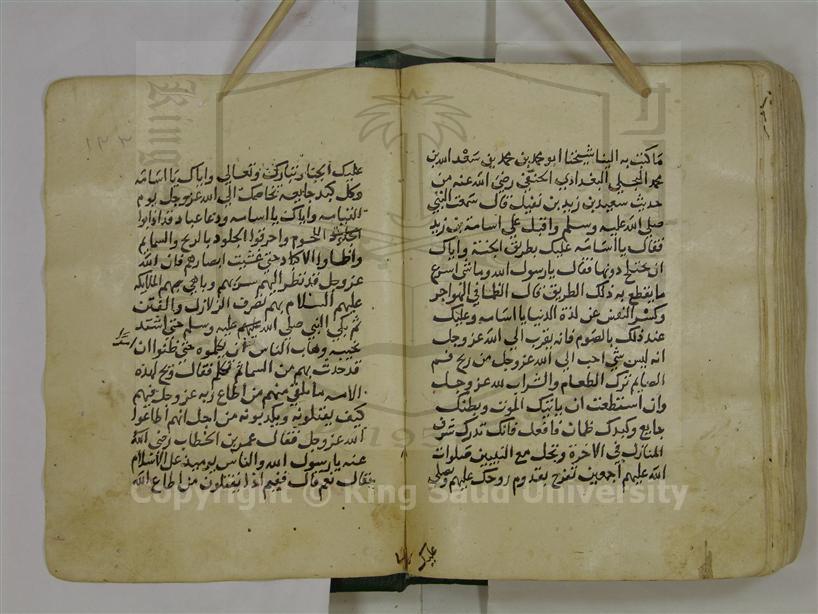 ما كتب به الينا شيخنا ابو محمد بن محمد بن سعد الله بن
محمد البجلي البغدادي الحنفي رضي الله عنه من
حديث سعيد بن زيد بن نفيل قال سمعت النبي
صلى الله عليه وسلم واقبل على اسامة بن زيد
فقال يا اسامة عليك بطريق الجنة واياك
ان تختلج دونها فقال يا رسول الله وما شي اسرع
ما يقطع به ذلك الطريق قال الظما في الهواجر
وكسر النفس عن لذة الدنيا يا اسامه وعليك
عند ذلك بالصوم فانه يقرب الى الله عز وجل
انه ليس شي احب الى الله عز وجل من ريح فم
الصايم ترك الطعام والشراب لله عز وجل
وان استطعت ان ياتيك الموت وبطنك
جايع وكبدك ظمان فافعل فانك تدرك شرف
المنازل في الاخرة وتحل مع النبيين صلوات
الله عليهم اجمعين تفرح بقدوم روحك عليهم ويصلي
عليك
عليك الجبار تبارك وتعالى واياك يا اسامه
وكل كبد جايعه تخاصمك الى الله عز وجل يوم
القيامه واياك يا اسامه ودعا عباد قد اذابوا
اللحوم واحرقوا الجلود بالريح والسمايم
واظماوا الاكباد حتى غشيت ابصارهم فان الله
عز وجل قد نظر اليهم وباهى بهم الملايكه
عليهم السلام بهم تصرف الزلازل والفتن
ثم بكى النبي صلى الله عليه وسلم حتى اشتد
نحيبه وهاب الناس ان يكلموه حتى ظنوا ان
قد حدث بهم من السما ثم تكلم فقال ويح لهذه
الامه ما يلقى منهم من اطاع ربه عز وجل فيهم
كيف يقتلونه ويكذبونه من اجل انهم اطاعوا
الله عز وجل فقال عمر بن الخطاب رضي الله
عنه يا رسول الله والناس يوميذ على الاسلام
فقال نعم قال ففيم اذا يقتلون من اطاع الله
١٢٣
Copyright © King Saud University
King
195